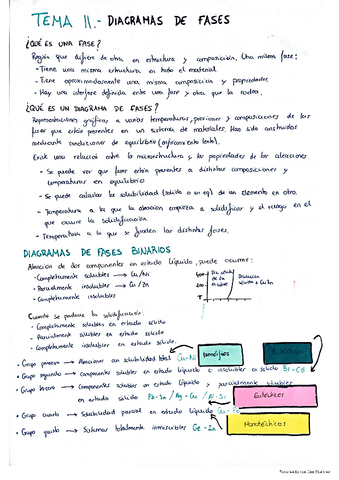 TEMA 11.- DIAGRAMAS DE FASES
¿QUÉ ES UNA FASE?
Región que difiere de otra en estructura y composición. Una misma fase:
- Tiene una misma estructura en todo el material
- Tiene aproximadamente una misma composición y propiedades
- Hay una interfase definida entre una fase y otra que la rodea.
¿QUÉ ES UN DIAGRAMA DE FASES?
Representaciones gráficas a varias temperaturas, presiones y composiciones de las
fases que están presentes en un sistema de materiales. Han sido construidos
mediante condiciones de equilibrio (enfriamiento lento).
Existe una relación entre la microestructura y las propiedades de las aleaciones
- Se puede ver que fases están presentes a distintas composiciones y
temperaturas en equilibrio
- Se puede calcular la solubilidad (sólido o en eq) de un elemento en otro.
- Temperatura a la que la aleación empieza a solidificar y el rango en el
que ocurre la solidificación
- Temperatura a la que se funden las distintas fases.
DIAGRAMAS DE FASES BINARIOS
Aleación de dos componentes en estado líquido, puede ocurrir:
- Completamente solubles → Cu/Ni
- Parcialmente insolubles → Cu/Zn
- Completamente insolubles
Cuando se produce la solidificación:
- Completamente solubles en estado sólido
- Parcialmente solubles en estado sólido
- Completamente insolubles en estado sólido.
• Grupo primero → Aleaciones con solubilidad total Cu-Ni
• Grupo segundo → componentes solubles en estado líquido e insolubles en sólido Bi-Cd
• Grupo tercero → Componentes solubles en estado líquido y parcialmente solubles
en estado sólido Pb-Sn / Ag-Cu / Al-Si
Eutécticos
• Grupo cuarto → Solubilidad parcial en estado líquido Cu-Pb
• Grupo quinto → Sistemas totalmente inmiscibles
Monotécticos